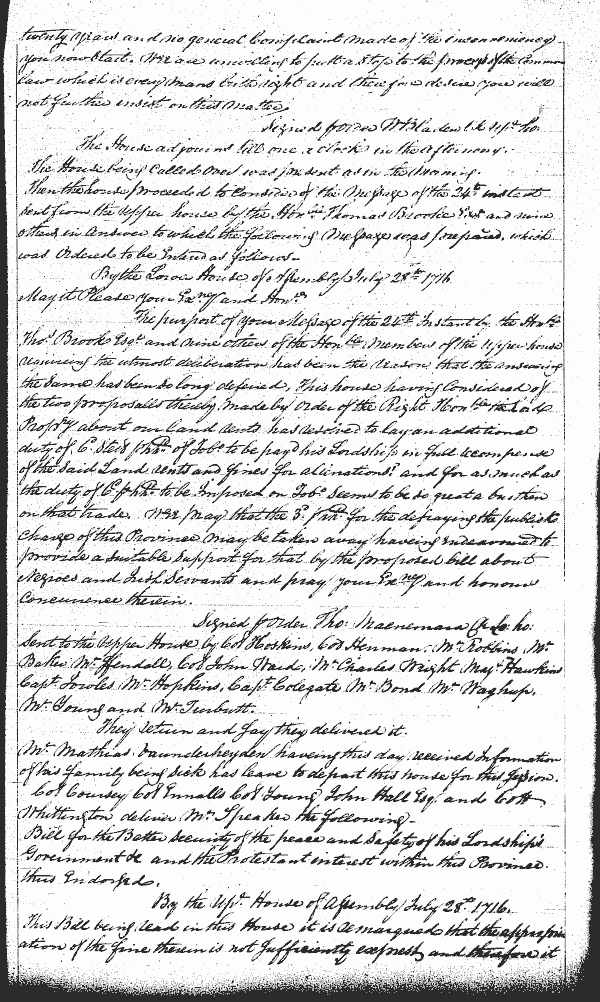 twenty years and no general Complaint made of the inconveniency
you now Start. Wee are unwilling to putt a Stop to the process of the Common
law which is every mans birth right and therefore desire you will
not further insist on that matter.
Signed p order W Bladen Cl. upr. ho:
The House adjourns till one a clock in the afternoon.
The House being called over was present as in the morning.
Then the house proceeded to Consider of the Message of the 24th instant
Sent from the upper house by the Honble Thomas Brooke Esqr and nine
others in Answer to which the following Message was prepared, which
was Ordered to be Entred as follows.
By the Lower House of Assembly July 28th 1716.
May it Please your Exncy and Honrs
The purport of your Message of the 24th Instant by the Honble
Thos Brook Esqr and nine others of the Honble Members of the Upper house
requireing the utmost deliberation has been the reason that the answering
the Same has been so long deferred, This house having Considered of
the two proposalls thereby made by order of the Right Honble the Lord
Propry about our land rents has resolved to lay an additional
duty of 6. Sterl phhd. of Tobo. to be payd his Lordship in full recompense
of the said Land rents and fines for alienations. and for as much as
the duty of 6. p hhd. to be Imposed on Tobo. Seems to be so great a burthen
on that trade. Wee pray that the 3d. p hhd. for the defraying the publick
charge of this Province may be taken away haveing endeavoured to
provide a suitable Support for that by the proposed bill about
Negroes and Irish Servants and pray your Exncy and honours
Concurrence therein.
Signed p order Tho: Macnemara Cl. Lo: ho:
Sent to the Upper House by Col Hoskins, Col Henman. Mr. Robbins, Mr.
Baker Mr. Kendall, Col John Ward, Mr. Charles Wright Majr Hawkins
Capt. Lowles Mr. Hopkins, Capt. Colegate Mr. Bond Mr. Waghup.
Mr. Young and Mr. Turbutt.
They return and say they delivered it.
Mr. Mathias Vaunderheyden haveing this day received Information
of his family being Sick has leave to depart this house for this Session.
Col Coursey Col Ennalls Col Young John Hall Esqr. and Coll
Whittington deliver Mr. Speaker the following.
Bill for the Better Security of the peace and Safety of his Lordship's
Government &c and the Protestant interest within this Province.
thus Endorsed.
By the upr. House of Assembly July 28th 1716.
This Bill being read in this House it is remarqued that the appropri
ation of the fine therein is not Sufficiently exprest and therefore it